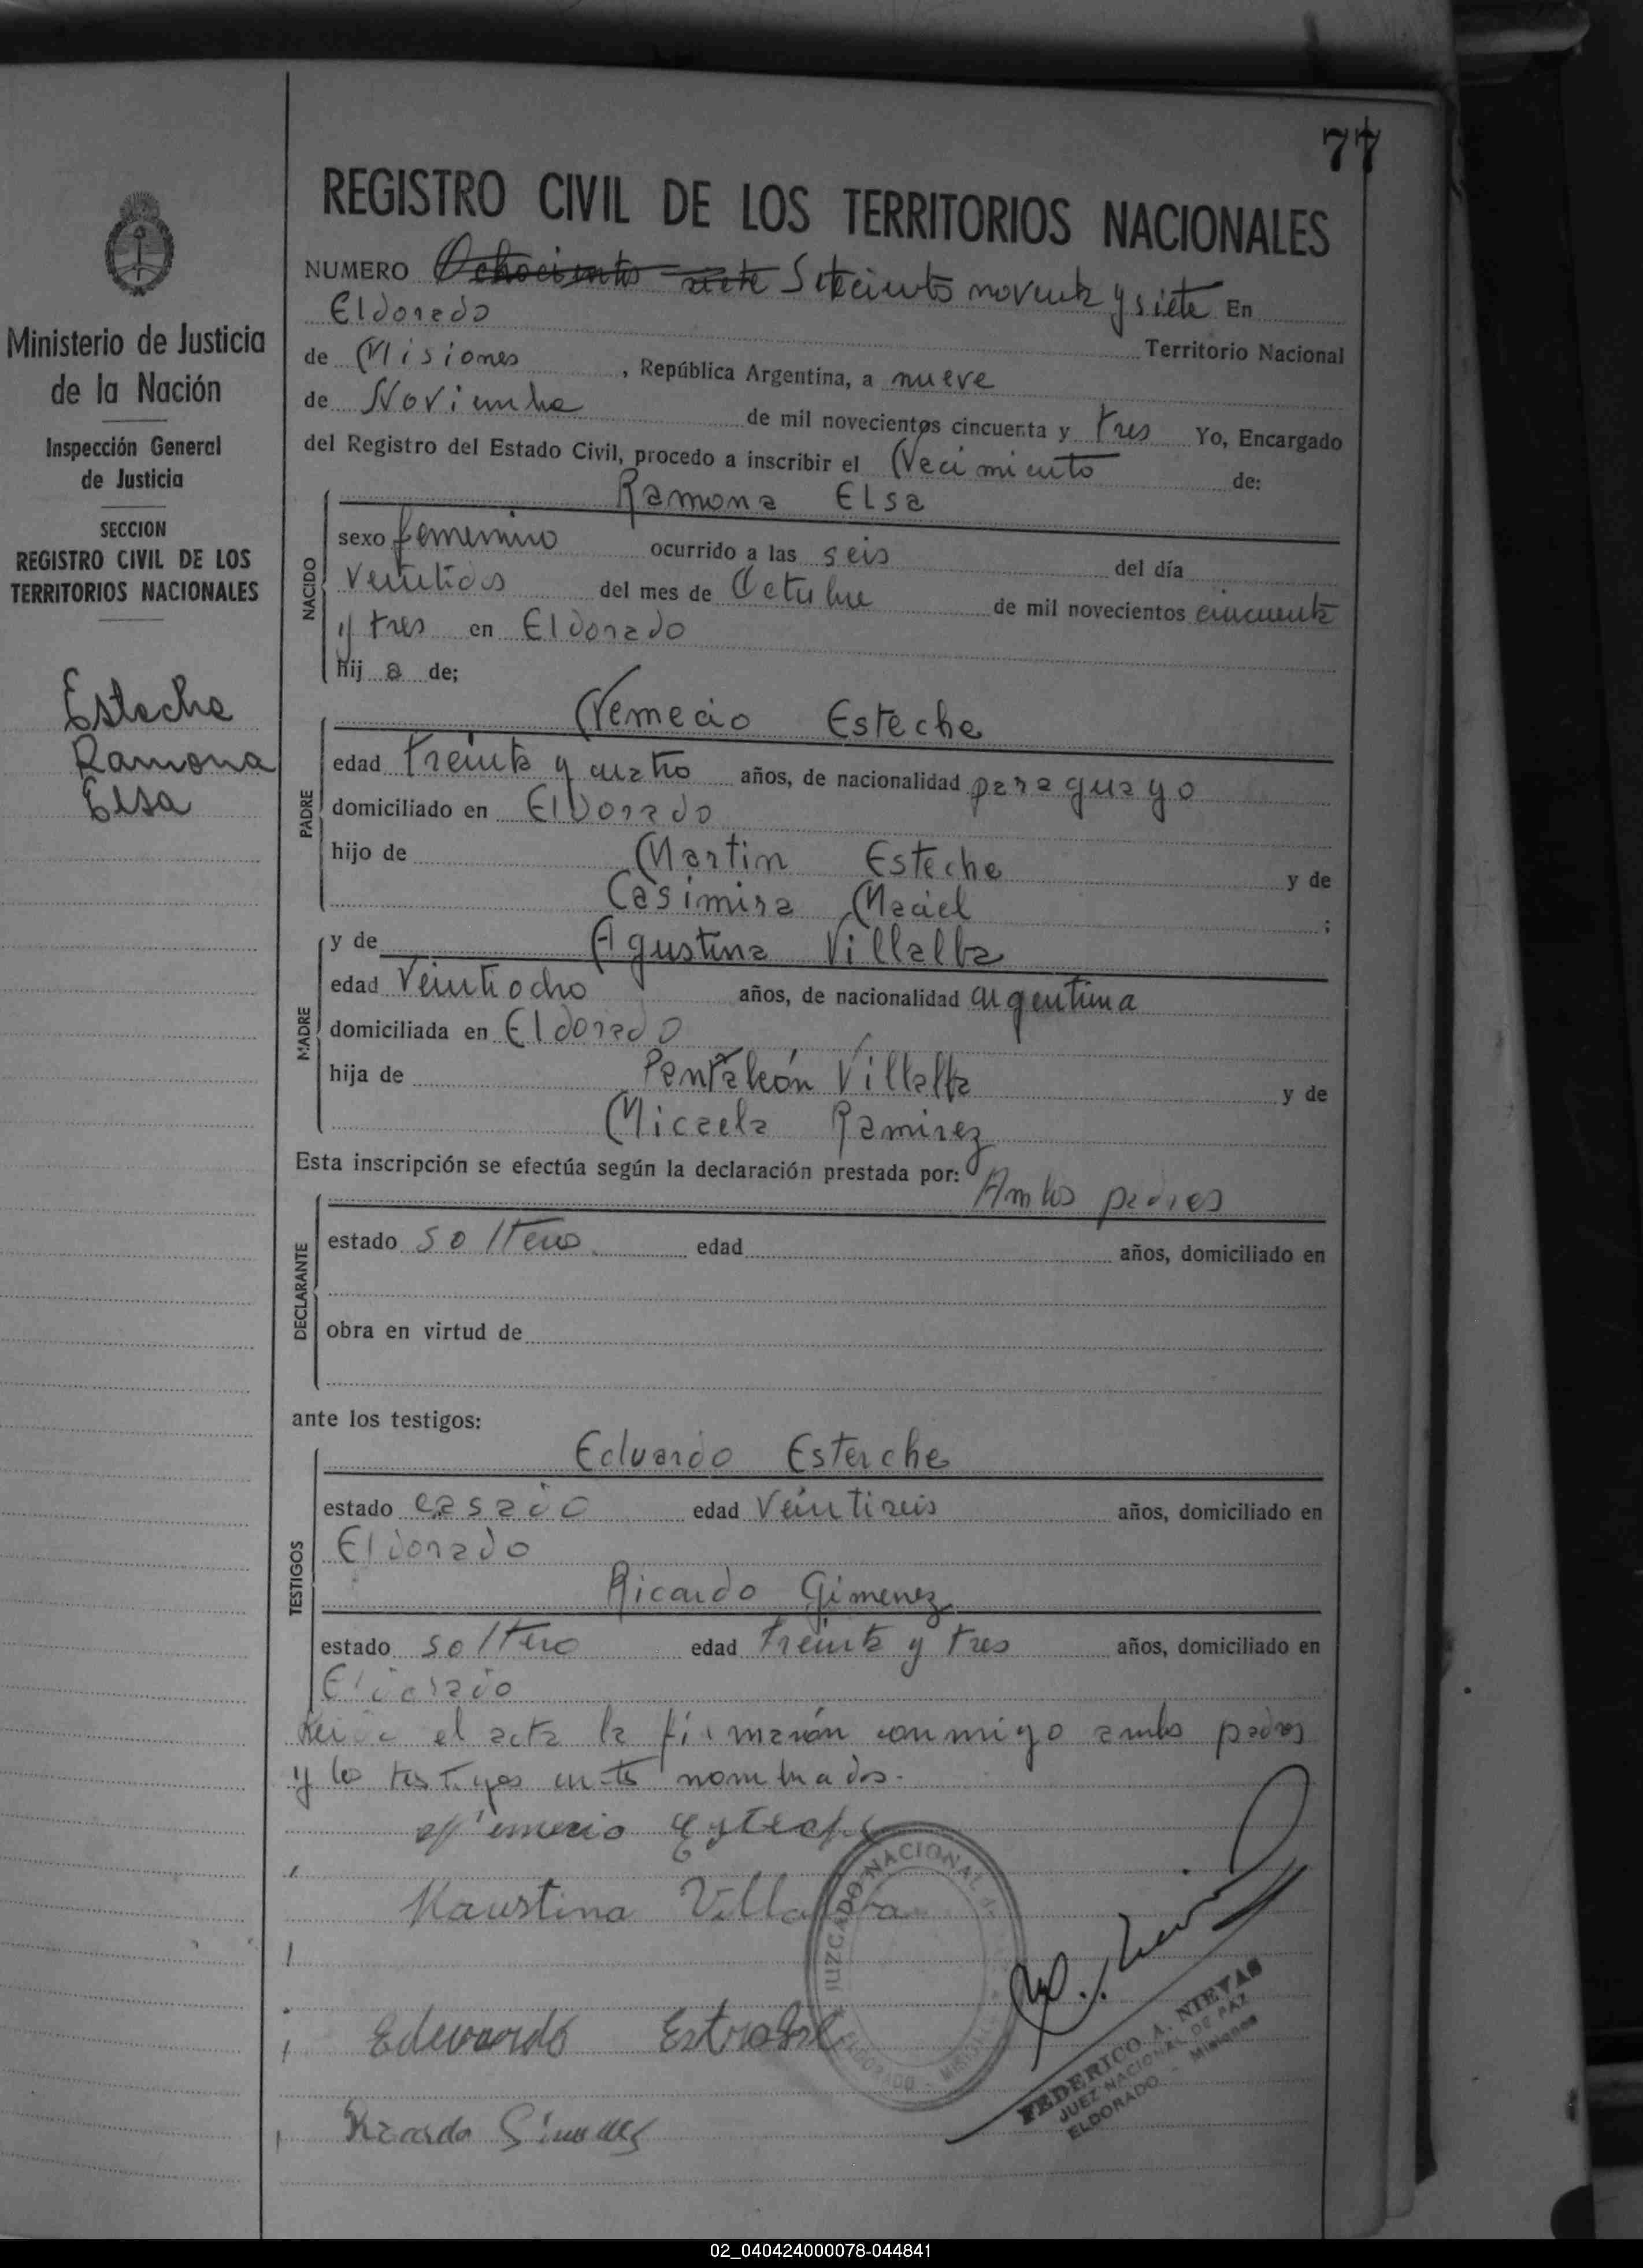 77
REGISTRO CIVIL DE LOS TERRITORIOS NACIONALES
NUMERO Ochocientos siete Setecientos noventa y siete En
Eldorado Territorio Nacional
de Misiones, República Argentina, a nueve
de Noviembre de mil novecientos cincuenta y tres Yo, Encargado
del Registro del Estado Civil, procedo a inscribir el Nacimiento de:
Ministerio de Justicia
de la Nación
Inspección General
de Justicia
SECCION
REGISTRO CIVIL DE LOS
TERRITORIOS NACIONALES
Esteche
Ramona
Elsa
NACIDO
Ramona Elsa
sexo femenino ocurrido a las seis del día
veintidos del mes de Octubre de mil novecientos cincuenta
y tres en Eldorado
hija de;
PADRE
Nemecio Esteche
edad treinta y cuatro años, de nacionalidad paraguayo
domiciliado en Eldorado
hijo de Martin Esteche y de
Casimira Maciel ;
MADRE
y de Agustina Villalba
edad veintiocho años, de nacionalidad argentina
domiciliada en Eldorado
hija de Pantaleón Villalba y de
Micaela Ramirez
Esta inscripción se efectúa según la declaración prestada por: Ambos padres
DECLARANTE
estado soltero edad años, domiciliado en
obra en virtud de
ante los testigos:
TESTIGOS
Eduardo Esterche
estado casado edad Veintiseis años, domiciliado en
Eldorado
Ricardo Gimenez
estado soltero edad treinta y tres años, domiciliado en
Eldorado
Leida el acta la firmarón conmigo ambos padres
y los testigos antes nombrados.
Nemecio Esteche
Villalba
Eduardo
Ricardo Gimenez
JUZGADO NACIONAL
ELDORADO - MISIONES
FEDERICO A. NIEVAS
JUEZ NACIONAL DE PAZ
ELDORADO - Misiones
02_040424000078-044841